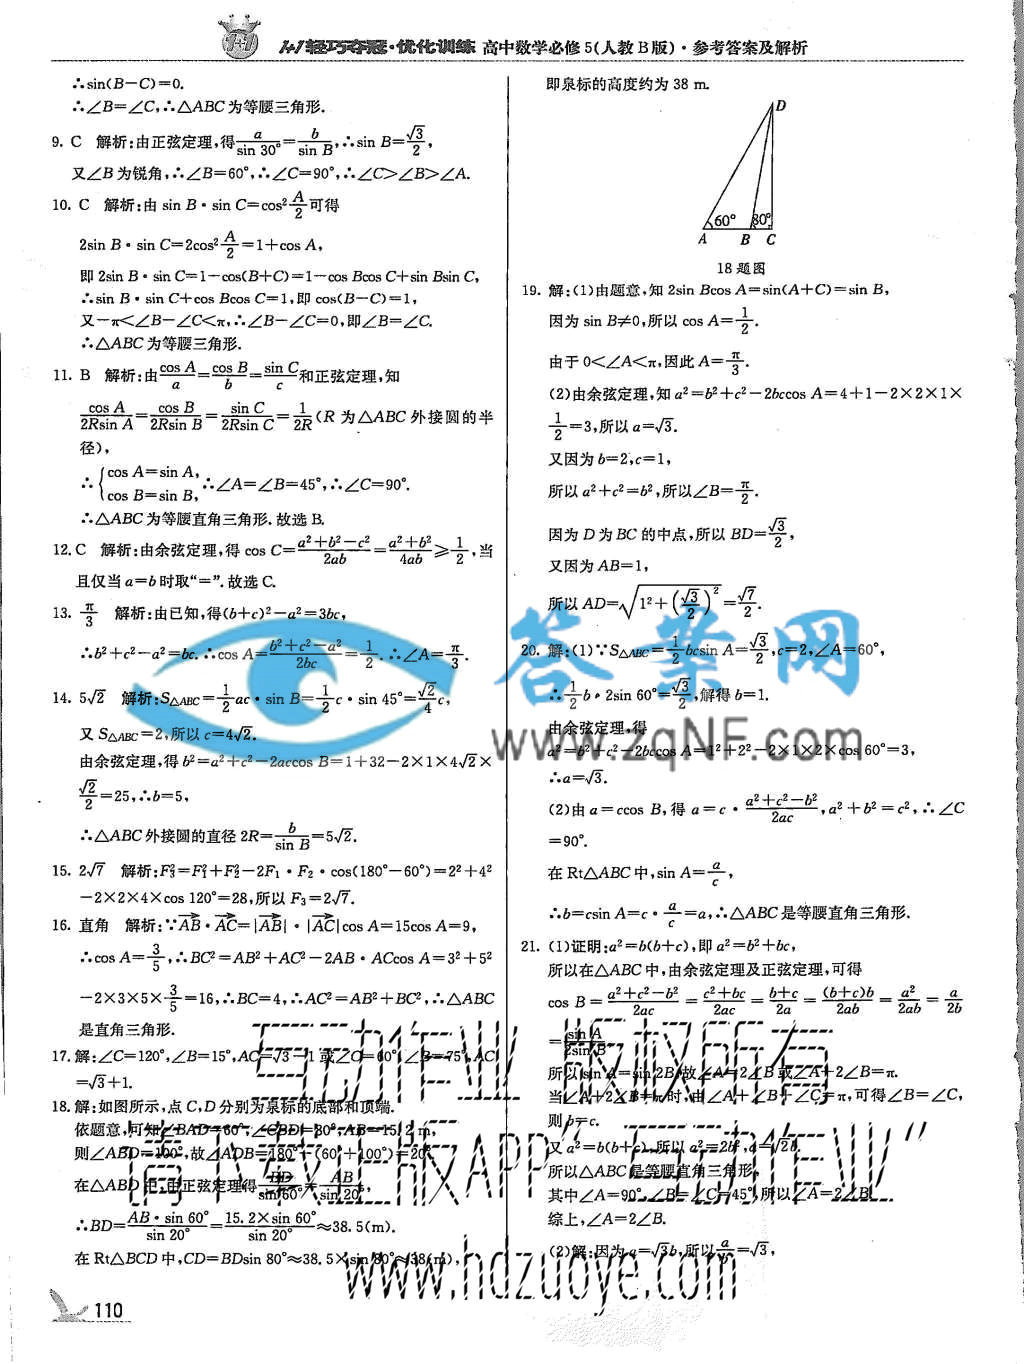 1+1 轻巧夺冠·优化训练 高中数学必修5(人教B版)·参考答案及解析
∴sin(B-C)=0.
∴∠B=∠C,∴△ABC为等腰三角形.
9. C 解析:由正弦定理,得a/sin 30°=b/sin B,∴sin B=√3/2,
又∠B为锐角,∴∠B=60°,∴∠C=90°,∴∠C>∠B>∠A.
10. C 解析:由 sin B·sin C=cos²A/2可得
2sin B·sin C=2cos²A/2=1+cos A,
即 2sin B·sin C=1-cos(B+C)=1-cos Bcos C+sin Bsin C,
∴sin B·sin C+cos Bcos C=1,即 cos(B-C)=1,
又-π<∠B-∠C<π,∴∠B-∠C=0,即∠B=∠C.
∴△ABC为等腰三角形.
11. B 解析:由cos A/a=cos B/b=sin C/c和正弦定理,知
cos A/2Rsin A=cos B/2Rsin B=sin C/2Rsin C=1/2R(R 为△ABC外接圆的半
径),
∴{cos A=sin A, cos B=sin B,∴∠A=∠B=45°,∴∠C=90°.
∴△ABC为等腰直角三角形.故选 B.
12. C 解析:由余弦定理,得 cos C=a²+b²-c²/2ab=a²+b²/4ab≥1/2,当
且仅当 a=b 时取“=”.故选 C.
13. π/3 解析:由已知,得(b+c)²-a²=3bc,
∴b²+c²-a²=bc.∴cos A=b²+c²-a²/2bc=1/2.∴∠A=π/3.
14. 5√2 解析:S△ABC=1/2ac·sin B=1/2c·sin 45°=√2/4c,
又 S△ABC=2,所以 c=4√2.
由余弦定理,得 b²=a²+c²-2accos B=1+32-2×1×4√2×
√2/2=25,∴b=5,
∴△ABC外接圆的直径 2R=b/sin B=5√2.
15. 2√7 解析:F₃²=F₁²+F₂²-2F₁·F₂·cos(180°-60°)=2²+4²
-2×2×4×cos 120°=28,所以 F₃=2√7.
16. 直角 解析:∵AB·AC=|AB|·|AC|cos A=15cos A=9,
∴cos A=3/5,∴BC²=AB²+AC²-2AB·ACcos A=3²+5²
-2×3×5×3/5=16,∴BC=4,∴AC²=AB²+BC²,∴△ABC
是直角三角形.
17. 解:∠C=120°,∠B=15°,AC=√3-1 或∠C=60°,∠B=75°,AC
=√3+1.
18. 解:如图所示,点 C,D 分别为泉标的底部和顶端.
依题意,可知∠BAD=60°,∠CBD=80°,AB=15.2 m,
则∠ABD=100°,故∠ADB=180°-(60°+100°)=20°.
在△ABD中,由正弦定理得BD/sin 60°=AB/sin 20°,
∴BD=AB·sin 60°/sin 20°=15.2×sin 60°/sin 20°≈38.5(m).
在 Rt△BCD 中,CD=BDsin 80°≈38.5×sin 80°≈38(m),
110
即泉标的高度约为 38 m.
D
60° 80°
A B C
18 题图
19. 解:(1)由题意,知 2sin Bcos A=sin(A+C)=sin B,
因为 sin B≠0,所以 cos A=1/2.
由于 0<∠A<π,因此 A=π/3.
(2)由余弦定理,知 a²=b²+c²-2bccos A=4+1-2×2×1×
1/2=3,所以 a=√3.
又因为 b=2,c=1,
所以 a²+c²=b²,所以∠B=π/2.
因为 D 为 BC 的中点,所以 BD=√3/2,
又因为 AB=1,
所以 AD=√(1²+(√3/2)²)=√7/2.
20. 解:(1)∵S△ABC=1/2bcsin A=√3/2,c=2,∠A=60°,
∴1/2b·2sin 60°=√3/2,解得 b=1.
由余弦定理,得
a²=b²+c²-2bccos A=1²+2²-2×1×2×cos 60°=3,
∴a=√3.
(2)由 a=ccos B,得 a=c·a²+c²-b²/2ac,a²+b²=c²,∴∠C
=90°.
在 Rt△ABC 中,sin A=a/c,
∴b=csin A=c·a/c=a,∴△ABC 是等腰直角三角形.
21. (1)证明:a²=b(b+c),即 a²=b²+bc,
所以在△ABC 中,由余弦定理及正弦定理,可得
cos B=a²+c²-b²/2ac=c²+bc/2ac=b+c/2a=(b+c)b/2ab=a²/2ab=a/2b
=sin A/2sin B
所以 sin A=sin 2B,故∠A=2∠B 或∠A+2∠B=π.
当∠A+2∠B=π时,由∠A+∠B+∠C=π,可得∠B=∠C,
则 b=c.
又 a²=b(b+c),所以 a²=2b²,a=√2b.
所以△ABC 是等腰直角三角形.
其中∠A=90°,∠B=∠C=45°,所以∠A=2∠B.
综上,∠A=2∠B.
(2)解:因为 a=√3b,所以a/b=√3,
答案网
www.zqNF.com
互动作业 版权所有
请下载正版APP“互动作业”
www.hdzuoye.com